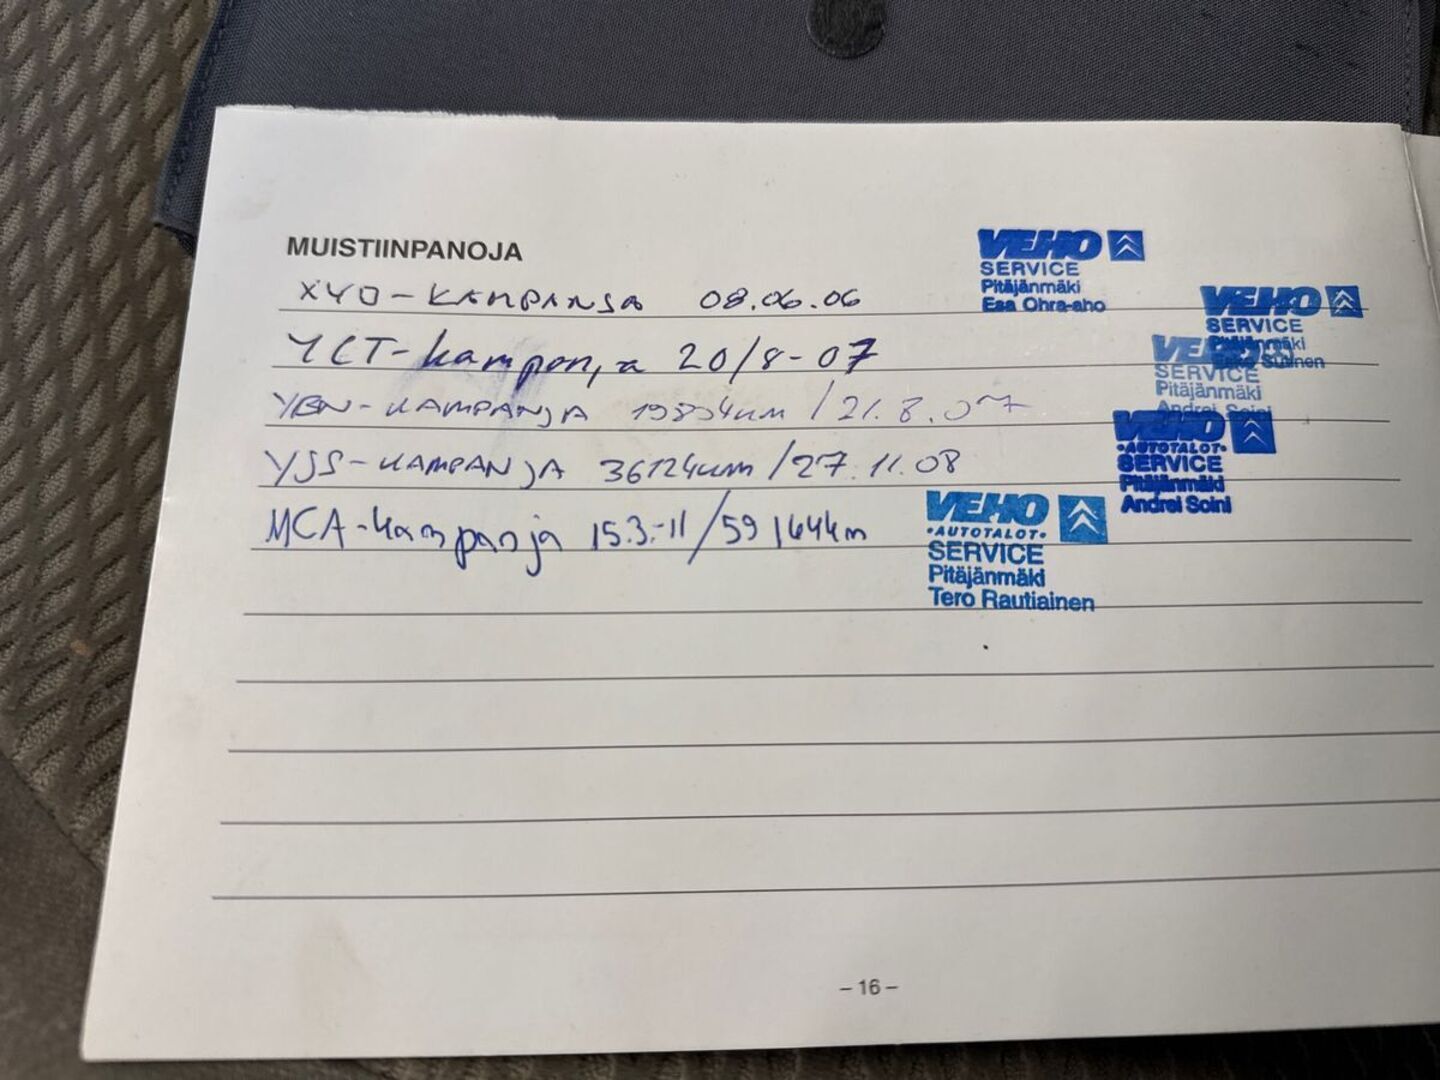 MUISTIINPANOJA
XYO-KAMPANJA 08.06.06
YCT-kampanja 20/8-07
YBN-KAMPANJA 19834km / 21.8.07
YSS-KAMPANJA 36124km / 27.11.08
MCA-kampanja 15.3.-11 / 59 164km
VEHO
SERVICE
Pitäjänmäki
Esa Ohra-aho
VEHO
SERVICE
Pitäjänmäki
VEHO
SERVICE
Pitäjänmäki
Andrei Soini
VEHO
•AUTOTALOT•
SERVICE
Pitäjänmäki
Andrei Soini
VEHO
•AUTOTALOT•
SERVICE
Pitäjänmäki
Tero Rautiainen
– 16 –